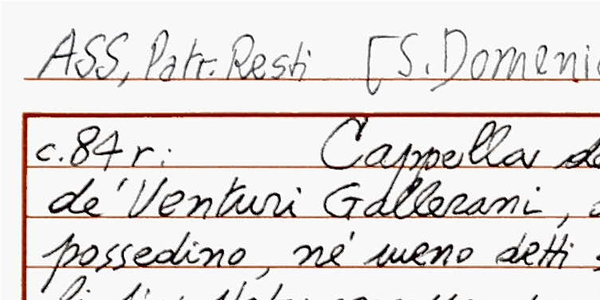 ASS, Patr. Resti [S. Domeni
c. 84 r: Cappella de
de' Venturi Gallerani,
possedino, né meno detti